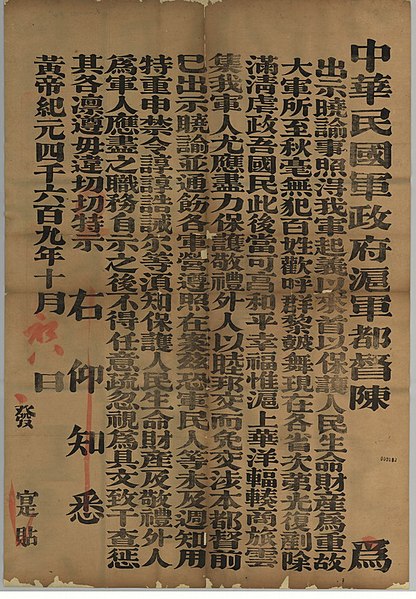 中華民國軍政府滬軍都督陳 為
出示曉諭事照得我軍起義以來首以保護人民生命財產為重故
大軍所至秋毫無犯百姓歡呼群黎鼓舞現在各省次第光復剷除
滿清虐政吾國民此後當可昌和平幸福惟滬上華洋輻輳商旅雲
集我軍人尤應盡力保護敬禮外人以睦邦交而免交涉本都督前
已出示曉諭並通飭各軍營遵照在案茲恐軍民人等未及週知用
特重申禁令諄諄誥誡爾等須知保護人民生命財產及敬禮外人
為軍人應盡之職務自示之後不得任意疏忽視為具文致干查懲
其各凜遵毋違切切特示 右仰知悉
黃帝紀元四千六百九年十月初八日
發 寔貼